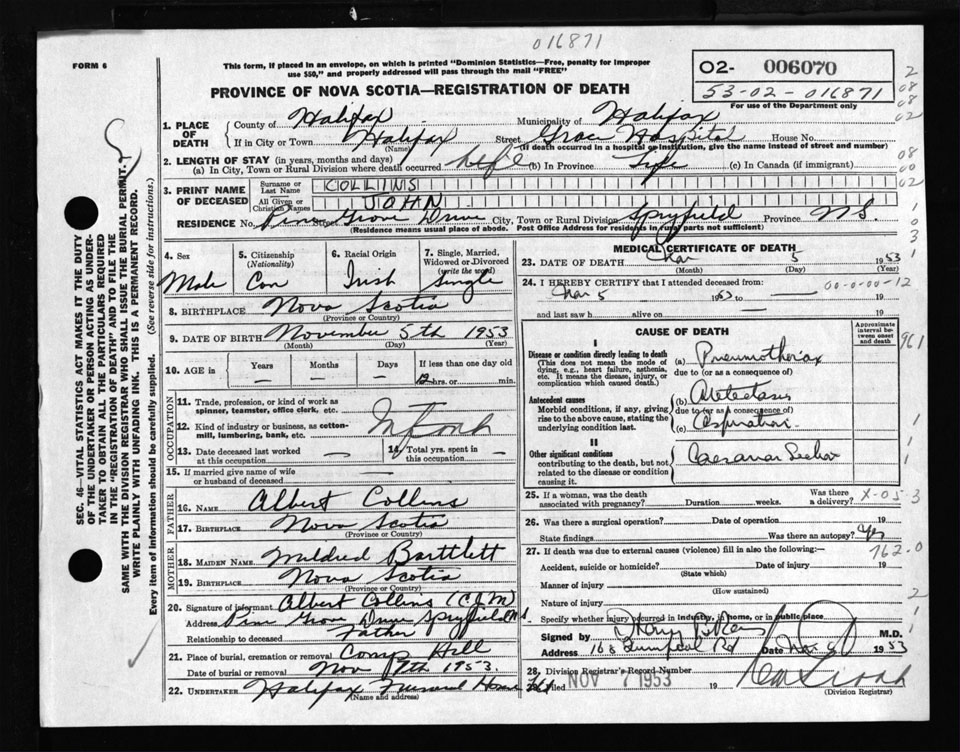 016871
FORM 6
This form, if placed in an envelope, on which is printed "Dominion Statistics—Free, penalty for improper
use $50," and properly addressed will pass through the mail "FREE"
PROVINCE OF NOVA SCOTIA—REGISTRATION OF DEATH
O2- 006070
53-02-016871
For use of the Department only
2
08
08
02
1. PLACE OF DEATH
County of Halifax Municipality of Halifax
If in City or Town Halifax Street Grace Hospital House No.
(Name) (If death occurred in a hospital or institution, give the name instead of street and number)
2. LENGTH OF STAY (in years, months and days)
(a) In City, Town or Rural Division where death occurred Life (b) In Province Life (c) In Canada (if immigrant)
08
00
02
3. PRINT NAME OF DECEASED
Surname or Last Name COLLINS
All Given or Christian Names JOHN
RESIDENCE No. Pine Grove Drive City, Town or Rural Division Spryfield Province N.S.
(Residence means usual place of abode. Post Office Address for residents in rural parts not sufficient)
1
0
3
1
4. Sex Male
5. Citizenship (Nationality) Can
6. Racial Origin Irish
7. Single, Married, Widowed or Divorced (write the word) Single
8. BIRTHPLACE Nova Scotia
(Province or Country)
9. DATE OF BIRTH November 5th 1953
(Month) (Day) (Year)
10. AGE in Years — Months — Days — If less than one day old
12 hrs. or min.
OCCUPATION
11. Trade, profession, or kind of work as spinner, teamster, office clerk, etc.
12. Kind of industry or business, as cotton-mill, lumbering, bank, etc.
13. Date deceased last worked at this occupation —
14. Total yrs. spent in this occupation —
15. If married give name of wife or husband of deceased —
FATHER
16. NAME Albert Collins
17. BIRTHPLACE Nova Scotia
(Province or Country)
MOTHER
18. MAIDEN NAME Mildred Bartlett
19. BIRTHPLACE Nova Scotia
(Province or Country)
20. Signature of informant Albert Collins (C.J.M)
Address Pine Grove Drive Spryfield
Relationship to deceased Father
21. Place of burial, cremation or removal Camp Hill
Date of burial or removal Nov 1953.
22. UNDERTAKER Halifax Funeral Home
(Name and address)
MEDICAL CERTIFICATE OF DEATH
23. DATE OF DEATH 5 1953
(Month) (Day) (Year)
24. I HEREBY CERTIFY that I attended deceased from:
5 1953 to — 19
00-0-00-12
and last saw h alive on — 19
CAUSE OF DEATH
Approximate interval between onset and death
961
I
Disease or condition directly leading to death
(This does not mean the mode of dying, e.g., heart failure, asthenia, etc. It means the disease, injury, or complication which caused death.)
(a) Pneumothorax
due to (or as a consequence of)
Antecedent causes
Morbid conditions, if any, giving rise to the above cause, stating the underlying condition last.
(b) Atelectasis
due to (or as a consequence of)
(c) Aspiration.
II
Other significant conditions
contributing to the death, but not related to the disease or condition causing it.
Caesarian Section
1
1
1
25. If a woman, was the death associated with pregnancy? Duration weeks. Was there a delivery? X-05-3
26. Was there a surgical operation? Date of operation 19
State findings Was there an autopsy? Yes
27. If death was due to external causes (violence) fill in also the following:—
762-0
Accident, suicide or homicide? Date of injury 19
(State which)
Manner of injury
(How sustained)
Nature of injury
2
Specify whether injury occurred in industry, in home, or in public place
1
Signed by M.D.
1
168 Date Nov 1953
28. Division Registrar's Record Number
Filed NOV 7 1953 19
(Division Registrar)
SEC. 46—VITAL STATISTICS ACT MAKES IT THE DUTY
OF THE UNDERTAKER OR PERSON ACTING AS UNDER-
TAKER TO OBTAIN ALL THE PARTICULARS REQUIRED
IN THE "REGISTRATION OF DEATH" AND TO FILE THE
SAME WITH THE DIVISION REGISTRAR WHO SHALL ISSUE THE BURIAL PERMIT.
WRITE PLAINLY WITH UNFADING INK. THIS IS A PERMANENT RECORD.
Every item of information should be carefully supplied. (See reverse side for instructions.)